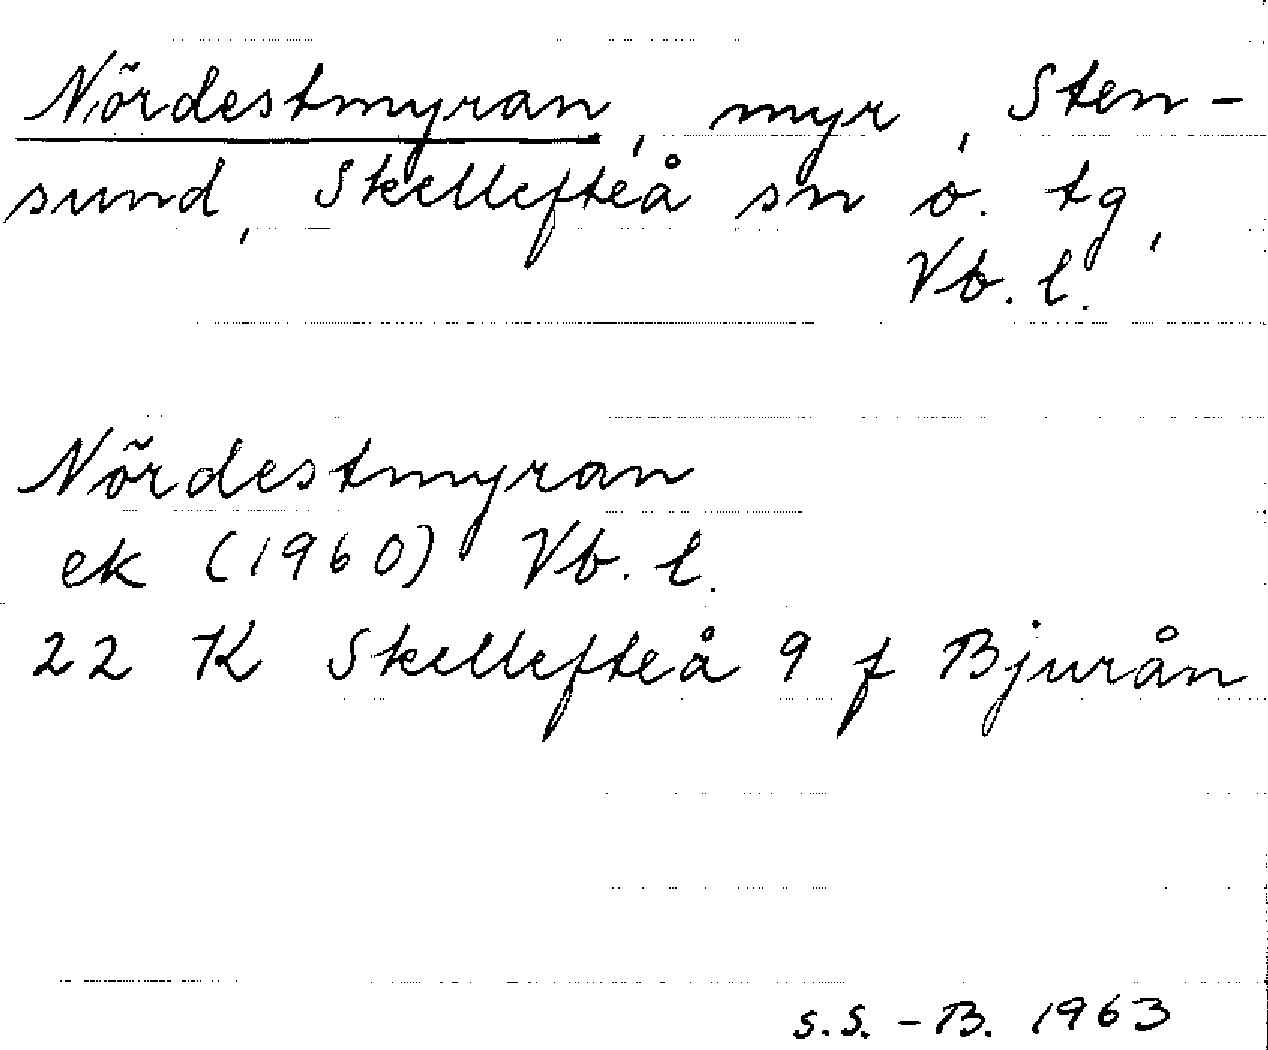 Nördestmyran, myr, Sten-
sund, Skellefteå sn o. tg,
Vb. l.
Nördestmyran
ek (1960) Vb. l.
22 K Skellefteå 9 f Bjurån
S.S.-B. 1963